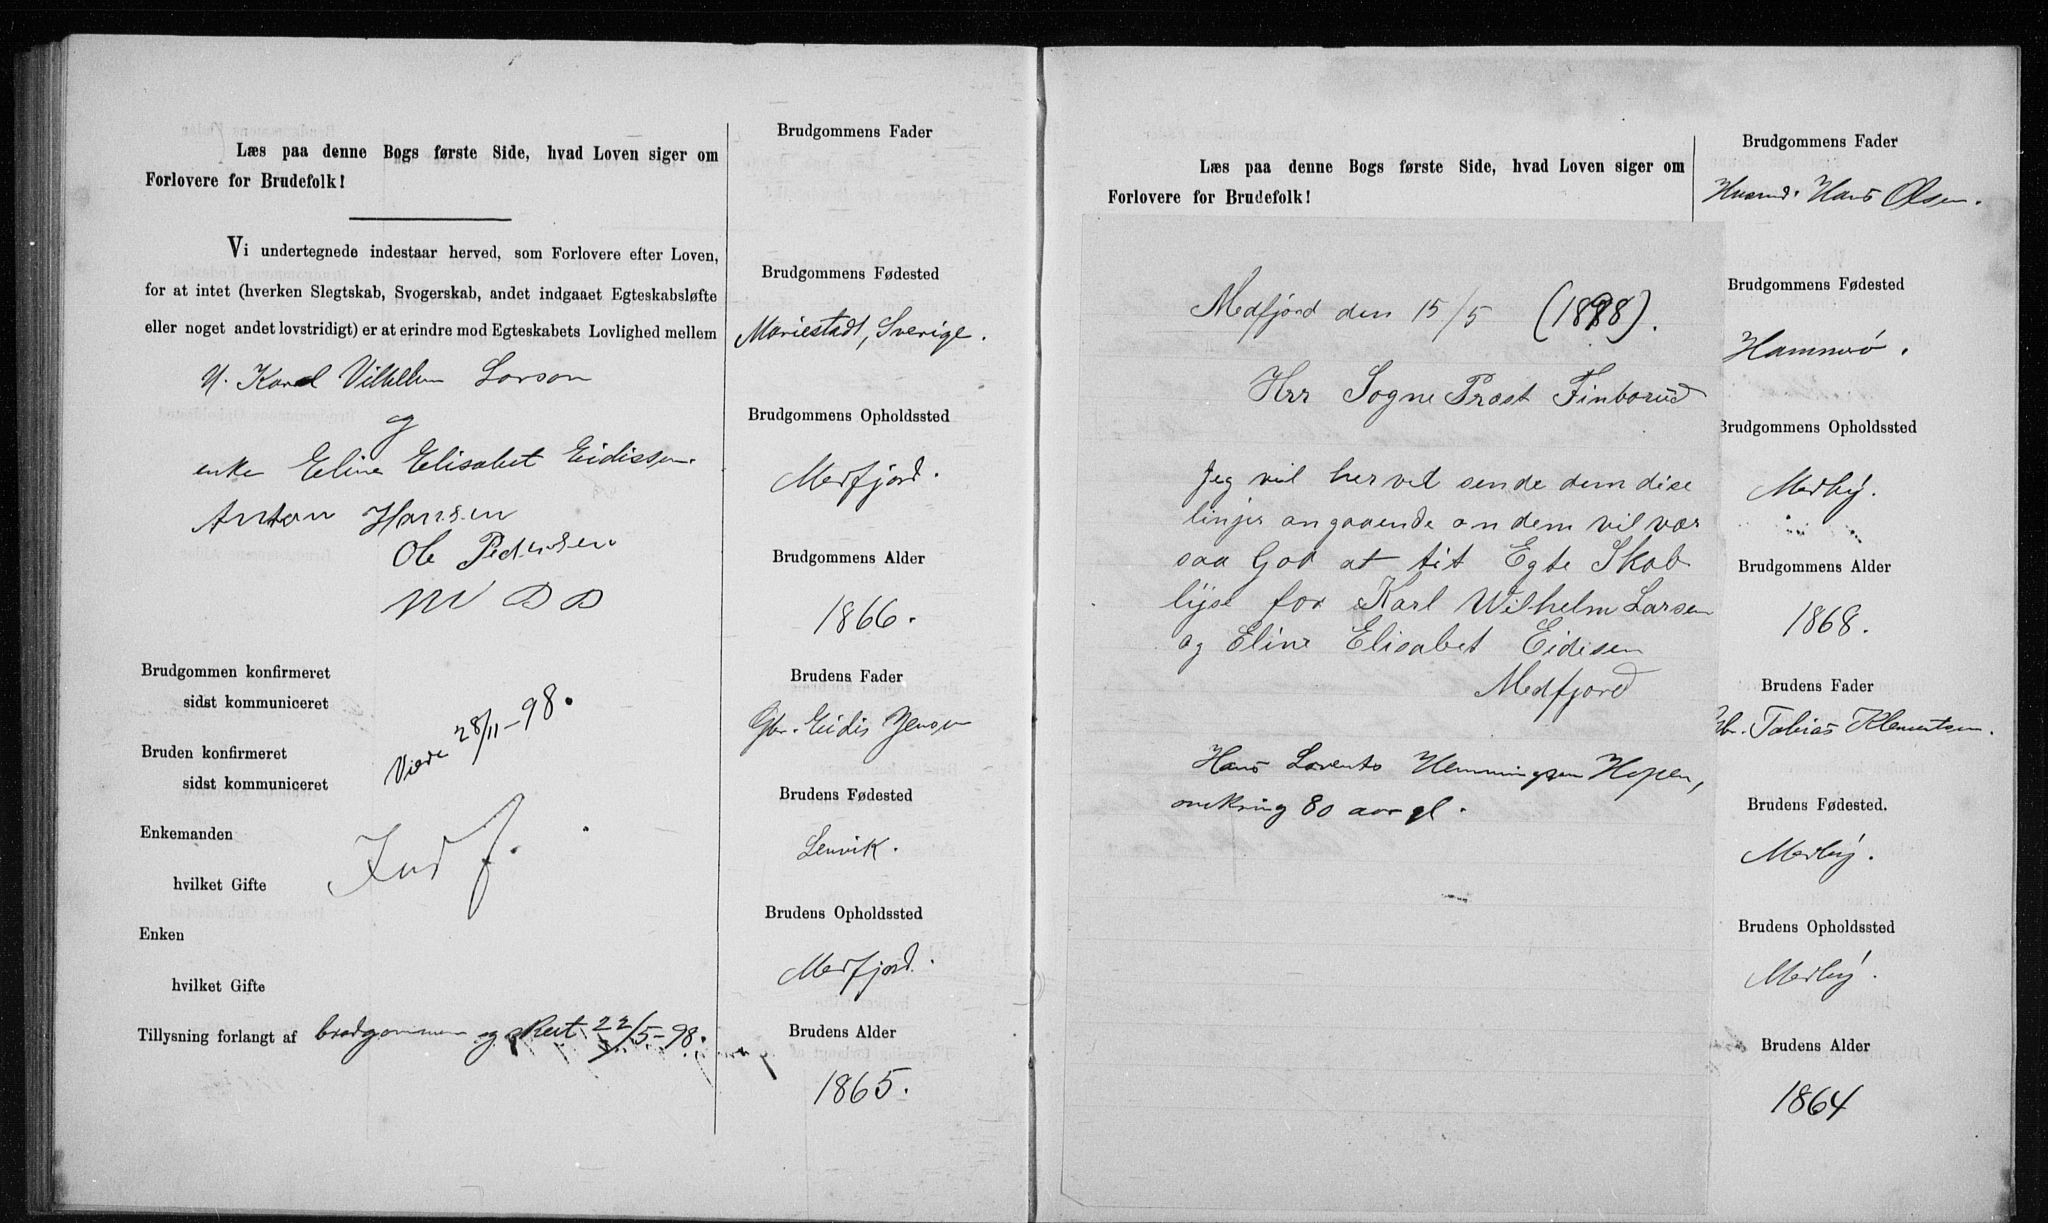 Læs paa denne Bogs første Side, hvad Loven siger om
Forlovere for Brudefolk!
Vi undertegnede indestaar herved, som Forlovere efter Loven,
for at intet (hverken Slegtskab, Svogerskab, andet indgaaet Egteskabsløfte
eller noget andet lovstridigt) er at erindre mod Egteskabets Lovlighed mellem
Karl Vilhelm Larson
og
enke Eline Elisabet Eidissen.
Anton Hansen
Ole Pedersen
Brudgommen konfirmeret
sidst kommuniceret
Viede 28/11-98.
Bruden konfirmeret
sidst kommuniceret
Indf.
Enkemanden
hvilket Gifte
Enken
hvilket Gifte
Tillysning forlangt af brudgommen og skeet 22/5-98.
Brudgommens Fader
Brudgommens Fødested
Mariestadt, Sverige.
Brudgommens Opholdssted
Medfjord.
Brudgommens Alder
1866.
Brudens Fader
Gbr. Eidis Jensen
Brudens Fødested
Lenvik.
Brudens Opholdssted
Medfjord.
Brudens Alder
1865.
Læs paa denne Bogs første Side, hvad Loven siger om
Forlovere for Brudefolk!
Medfjord den 15/5 (1898).
Hrr Sogne Præst Finborud
Jeg vil herved sende dem dise
linjer angaaende om dem vil vær
saa God at tit Egte Skab
lyse for Karl Wilhelm Larsen
og Eline Elisabet Eidisen
Medfjord
Hans Lorents Hemmingsen Hopen,
omkring 80 aar gl.
Brudgommens Fader
Husmd. Hans Olsen.
Brudgommens Fødested
Hammerø.
Brudgommens Opholdssted
Medby.
Brudgommens Alder
1868.
Brudens Fader
Gbr. Tobias Klementsen.
Brudens Fødested.
Medby.
Brudens Opholdssted
Medby.
Brudens Alder
1864